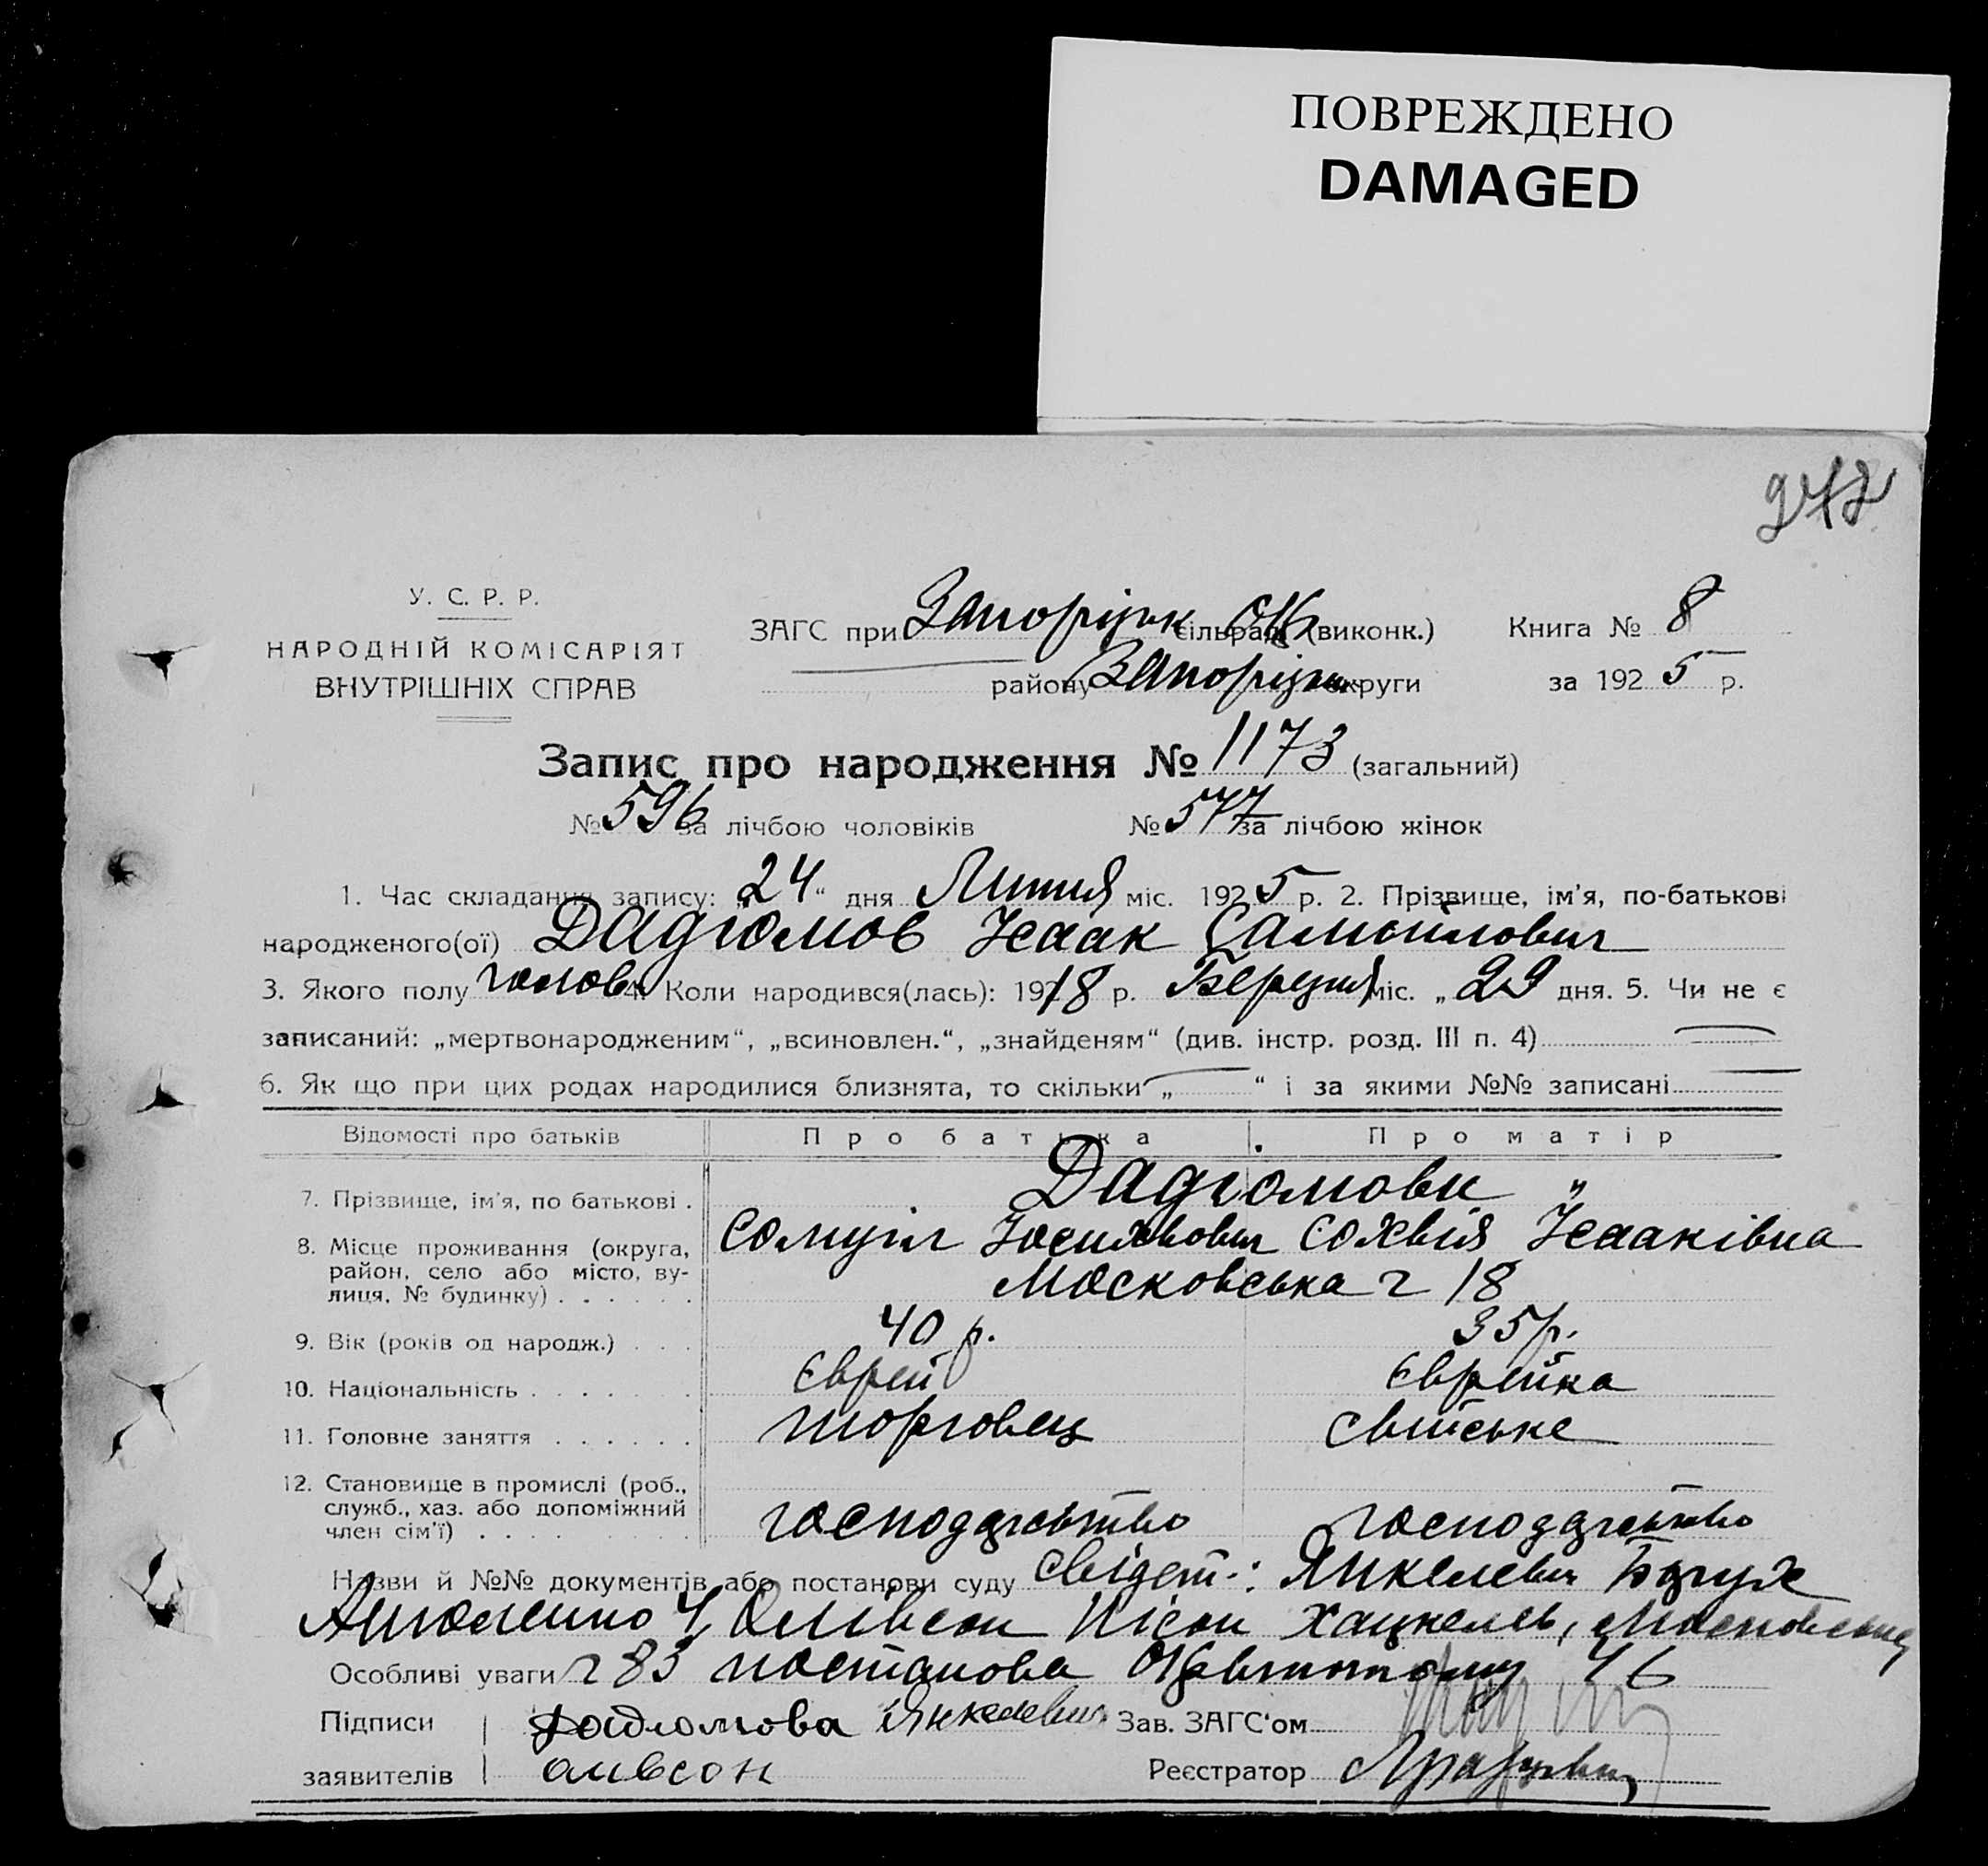 ПОВРЕЖДЕНО
DAMAGED
У. С. Р. Р.
НАРОДНІЙ КОМІСАРІЯТ
ВНУТРІШНІХ СПРАВ
ЗАГС при Запоріжськ (виконк.)
району Запоріжськ округи
Книга № 8
за 1925 р.
Запис про народження № 1173 (загальний)
№ 596 за лічбою чоловіків № 577 за лічбою жінок
1. Час складання запису: „24“ дня Липня міс. 1925 р. 2. Прізвище, ім'я, по-батькові
народженого(ої) Дадіомов Ісаак Самойлович
3. Якого полу чолов 4. Коли народився(лась): 1918 р. Березня міс. „29 дня. 5. Чи не є
записаний: „мертвонародженим“, „всиновлен.“, „знайденям“ (див. інстр. розд. III п. 4)
6. Як що при цих родах народилися близнята, то скільки „ “ і за якими №№ записані
Відомості про батьків Про батька Про матір
7. Прізвище, ім'я, по батькові . Дадіомови "
Самуїл Йосихвович Сохвія Ісааківна
8. Місце проживання (округа, район, село або місто, вулиця, № будинку) . . . . . . Московська ч 18
9. Вік (років од народж.) . . . 40 р. 35 р.
10. Національність . . . . . . . Єврей Єврейка
11. Головне заняття . . . . . . торговець свійське
12. Становище в промислі (роб., служб., хаз. або допоміжний член сім'ї) . . . . господарство господарство
Назви й №№ документів або постанови суду свідет.: Янкелевич
4, Олівсон Хацкелев, Московська
Особливі уваги ч 83 постанова 46
Підписи Дадіомова Янкелевич Зав. ЗАГС'ом
заявителів оливсон Реєстратор